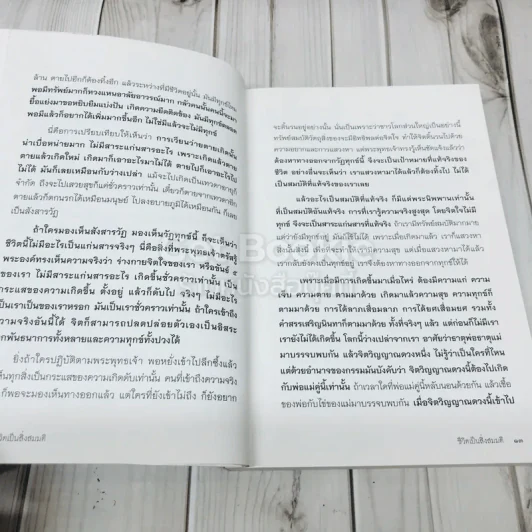 ล้าน ตายไปอีกก็ต้องทิ้งอีก แล้วระหว่างที่มีชีวิตอยู่นั้น มันมีทุกข์ไหม
พอมีทรัพย์มากก็หวงแหนอาลัยอาวรณ์มาก กลัวคนนั้นคนนี้จะมา
ยื้อแย่งมาขอหยิบยืมแบ่งปัน เกิดความยึดติดข้อง มันมีทุกข์ตลอด
พอมีแล้วก็อยากได้เพิ่มมากขึ้นอีก ไม่ใช่มีแล้วจะไม่มีทุกข์
นี่คือการเปรียบเทียบให้เห็นว่า การเวียนว่ายตายเกิดนั้น
น่าเบื่อหน่ายมาก ไม่มีสาระแก่นสารอะไร เพราะเกิดแล้วตาย
ตายแล้วเกิดใหม่ เกิดมาก็เอาอะไรมาไม่ได้ ตายไปก็เอาอะไรไป
ไม่ได้ มันก็เลยเหมือนกับว่างเปล่า แม้จะไปเกิดเป็นเทวดามีอายุที่
จำกัด ถึงจะไปเสวยสุขก็แค่ชั่วคราวเท่านั้น เดี๋ยวก็ตายจากเทวดาอีก
ตายแล้วก็ตกนรกได้เหมือนมนุษย์ ไปลงอบายภูมิได้เหมือนกัน ก็เลย
เป็นสังสารวัฏ
ถ้าใครมองเห็นสังสารวัฏ มองเห็นวัฏทุกข์นี้ ก็จะเห็นว่า
ชีวิตนี้ไม่มีอะไรเป็นแก่นสารจริงๆ นี่คือสิ่งที่พระพุทธเจ้าตรัสรู้
พระองค์ทรงเห็นความจริงว่า ร่างกายจิตใจของเรา หรือขันธ์ ๕
ของเรา ไม่มีสาระแก่นสารอะไร เกิดขึ้นชั่วคราวเท่านั้น เป็น
กระแสของความเกิดขึ้น ตั้งอยู่ แล้วก็ดับไป จริงๆ ไม่มีอะไร
เป็นเราเป็นของเราหรอก มันเป็นเราชั่วคราวเท่านั้น ถ้าใครเข้าถึง
ความจริงอันนี้ได้ จิตก็สามารถปลดปล่อยตัวเองเป็นอิสระ
จากพันธนาการทั้งหลายและความทุกข์ทั้งปวงได้
ยิ่งถ้าใครปฏิบัติตามพระพุทธเจ้า พอหยั่งเข้าไปลึกซึ้งแล้ว
เห็นทุกสิ่งเป็นกระแสของความเกิดดับเท่านั้น คนที่เข้าถึงความจริง
ก็พอจะมองเห็นทางออกแล้ว แต่ใครที่ยังเข้าไม่ถึง ก็ยังอยาก
ชีวิตเป็นสิ่งสมมติ
จะดิ้นรนอยู่อย่างนั้น นั่นเป็นเพราะว่าชาวโลกส่วนใหญ่เป็นอย่างนี้
ทรัพย์สมบัติวัตถุสิ่งของจะมีอิทธิพลต่อจิตใจ ทำให้จิตดิ้นรนไปด้วย
ความอยากและการแสวงหา แต่พระพุทธเจ้าทรงรู้เห็นชัดแจ้งแล้วว่า
ต้องหาทางออกจากวัฏทุกข์นี้ จึงจะเป็นเป้าหมายที่แท้จริงของ
ชีวิต อย่างอื่นจึงจะเห็นว่า เราแสวงหามาได้ก็ต้องทิ้งไป ไม่ได้
เป็นสมบัติที่แท้จริงของเราเลย
แล้วอะไรจึงจะเป็นสมบัติที่แท้จริง ก็มีแต่พระนิพพานเท่านั้น
ที่เป็นสมบัติอันแท้จริง การที่เรารู้ความจริงสูงสุด โดยจิตใจไม่มี
ทุกข์ จึงจะเป็นแก่นสารที่แท้จริง ถ้าเรามีทรัพย์สมบัติมากมาย
แต่ว่ายังมีทุกข์อยู่ มันก็ใช้ไม่ได้ เพราะเกิดแล้วก็ตาย แล้วเราแสวงหา
สิ่งนั้นสิ่งนี้ ดำเนินไปด้วยความทุกข์ความสุข แต่เมื่อแสวงหามาได้
เราก็เอาไปไม่ได้ จึงจะต้องหาทางออกจากทุกข์ให้ได้
เพราะเมื่อมีการเกิดขึ้นมาเมื่อไหร่ ต้องมีความแก่ ความ
เจ็บ ความตาย ตามมาด้วย เกิดมาแล้วความสุข ความทุกข์ก็
ตามมาด้วย การได้ลาภเสื่อมลาภ การได้ยศเสื่อมยศ รวมทั้ง
คำสรรเสริญนินทาก็ตามมาด้วย ทั้งที่จริงๆ แล้ว แต่ก่อนก็ไม่มีเรา
เรายังไม่ได้เกิดขึ้น โลกนี้ว่างเปล่าจากเรา อาศัยว่าธาตุพ่อธาตุแม่
มาบรรจบพบกัน แล้วจิตวิญญาณดวงหนึ่ง ไม่รู้ว่าเป็นใครที่ไหน
แต่ด้วยอำนาจของกรรมมันบังคับว่า จิตวิญญาณดวงนี้ต้องไปเกิด
กับพ่อแม่คู่นี้เท่านั้น ถ้าเวลาใดที่พ่อแม่คู่นี้หลับนอนด้วยกัน แล้วเชื้อ
ของพ่อกับไข่ของแม่มาบรรจบพบกัน เมื่อจิตวิญญาณดวงนี้เข้าไป
ชีวิตเป็นสิ่งสมมติ ๑๓